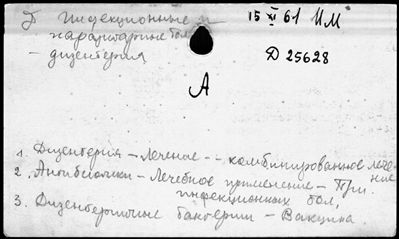 Д Инфекционные и 15 XI 61 ИМ
паразитарные бол.
- дизентерия Д 25628
А
1. Дизентерия - Лечение - - комбинированное лече-
ние
2. Антибиотики - Лечебное применение - При
инфекционных бол.
3. Дизентерийные бактерии - Вакцина